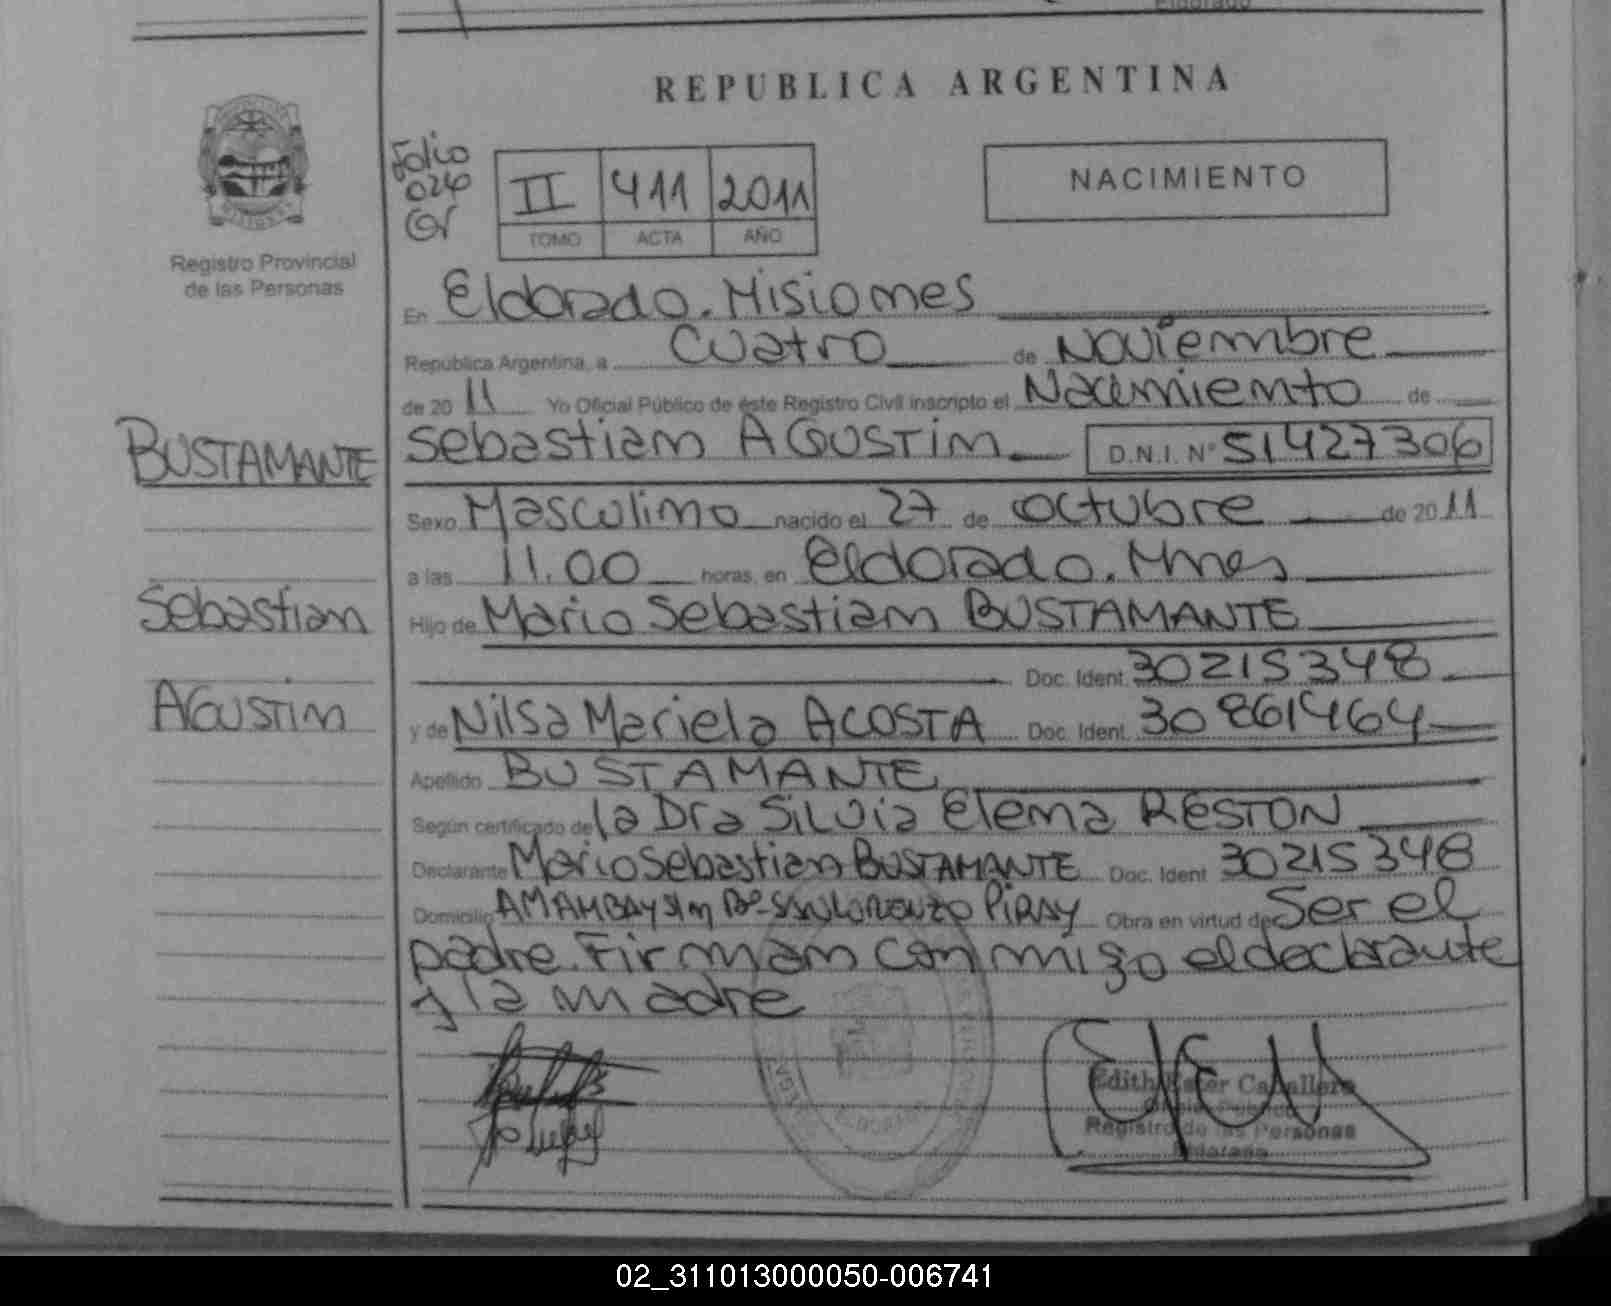 REPUBLICA ARGENTINA
Folio
026
II 411 2011
TOMO ACTA AÑO
NACIMIENTO
Registro Provincial
de las Personas
En Eldorado. Misiones
República Argentina, a Cuatro de Noviembre
de 2011 Yo Oficial Público de éste Registro Civil inscripto el Nacimiento de
BUSTAMANTE
Sebastian AGUSTIN D.N.I. Nº 51427306
Sexo Masculino nacido el 27 de octubre de 2011
a las 11.00 horas, en Eldorado. Mnes
Sebastian
Hijo de Mario Sebastian BUSTAMANTE
Doc. Ident. 30215348
AGUSTIN
y de Nilsa Mariela ACOSTA Doc. Ident. 30861464
Apellido BUSTAMANTE
Según certificado de la Dra SILVIA Elena RESTON
Declarante Mario Sebastian BUSTAMANTE Doc. Ident 30215348
Domicilio AMAMBAY s/n Bº SAN LORENZO PIRAY Obra en virtud de Ser el
padre. Firman conmigo el declarante
y la madre
Edith Ester Caballero
Oficial Público
Registro de las Personas
Eldorado
02_311013000050-006741